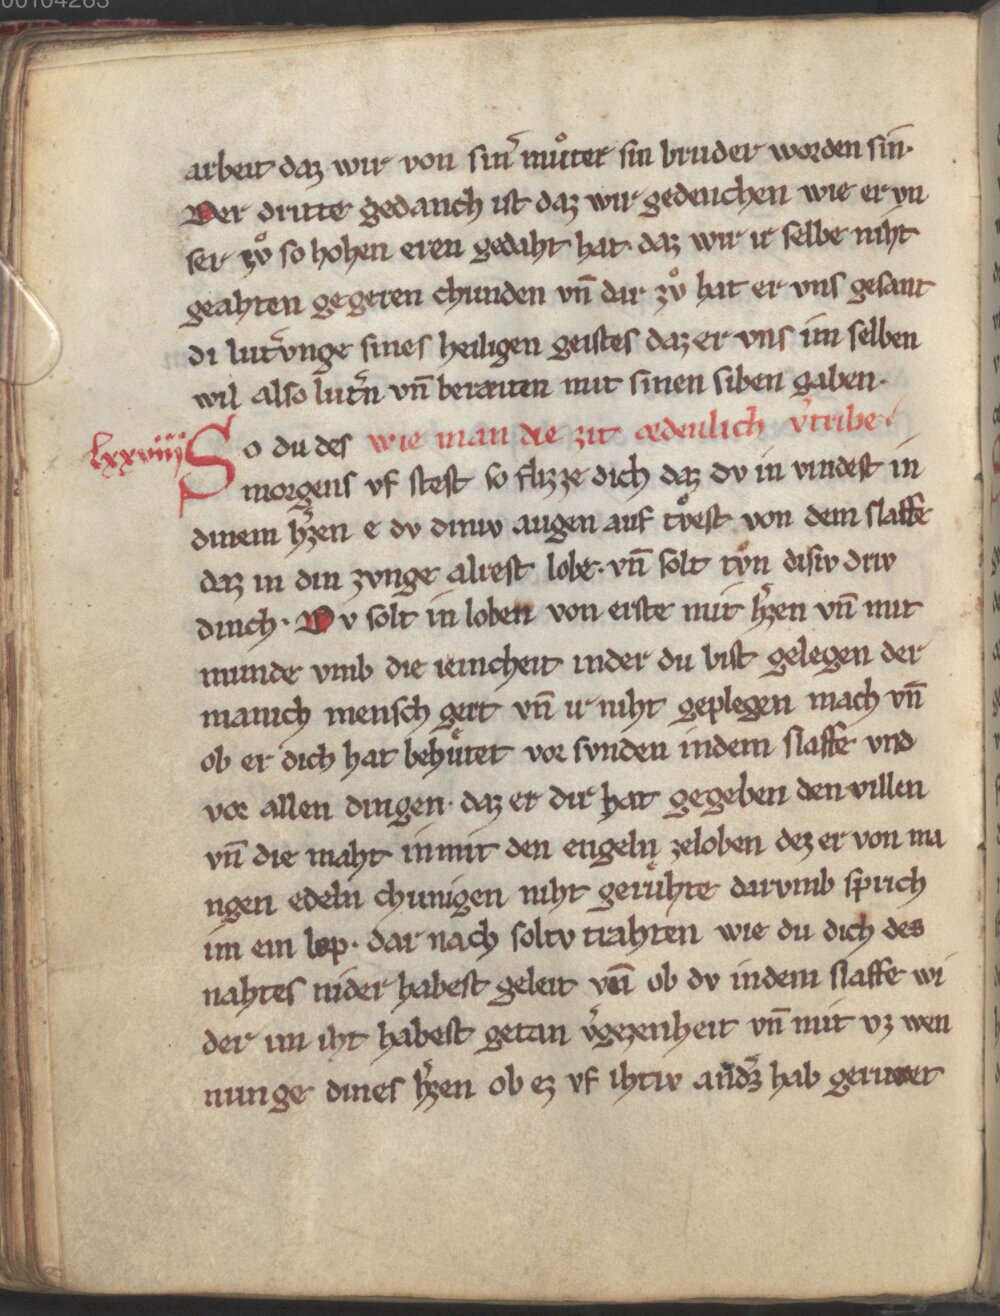 00104263
arbeit daz wir von sin̄ můter sin bruder worden sin·
Der dritte gedanch ist daz wir gedenchen wie er vn
ser zv̊ so hohen eren gedaht hat· daz wir ir selbe niht
geahten gegeren chunden vn̄ dar zv̊ hat er vns gesant
di lut̄vnge sines heiligen geistes daz er vns im selben
wil also lut̄n vn̄ beraiten mit sinen siben gaben·
lxxviiij So du des wie man die zit ordenlich v̄tribe·
morgens vf stest so flizze dich daz dv in vindest in
dinem h̄zen e dv diniv augen auf tv̊est von dem slaffe
daz in din zvnge alrest lobe· vn̄ solt tv̊n disiv driv
dinch· Dv solt in loben von erste mit h̄zen vn̄ mit
munde vmb die reincheit inder du bist gelegen der
manich mensch gert vn̄ ir niht geplegen mach vn̄
ob er dich hat behu̇tet vor svnden indem slaffe vnd
vor allen dingen· daz er dir hat gegeben den willen
vn̄ die maht inmit den engeln zeloben dez er von ma
ngen edeln chunigen niht gerůhte darvmb sprich
im ein lop· dar nach soltv trahten wie du dich des
nahtes nider habest geleit vn̄ ob dv indem slaffe wi
der im iht habest getan v̄gezzenheit vn̄ mit vz wen
nunge dines h̄zen ob ez vf ihtiv and̄z hab geruwet